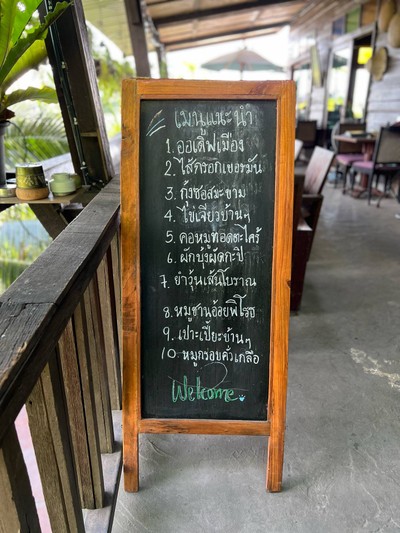 เมนูแนะนำ
1. ออเดิฟเมือง
2. ไส้กรอกเยอรมัน
3. กุ้งซอสมะขาม
4. ไข่เจียวบ้านๆ
5. คอหมูทอดตะไคร้
6. ผักบุ้งผัดกะปิ
7. ยำวุ้นเส้นโบราณ
8. หมูชานอ้อยพิโรธ
9. เปาะเปี๊ยะบ้านๆ
10. หมูกรอบคั่วเกลือ
Welcome